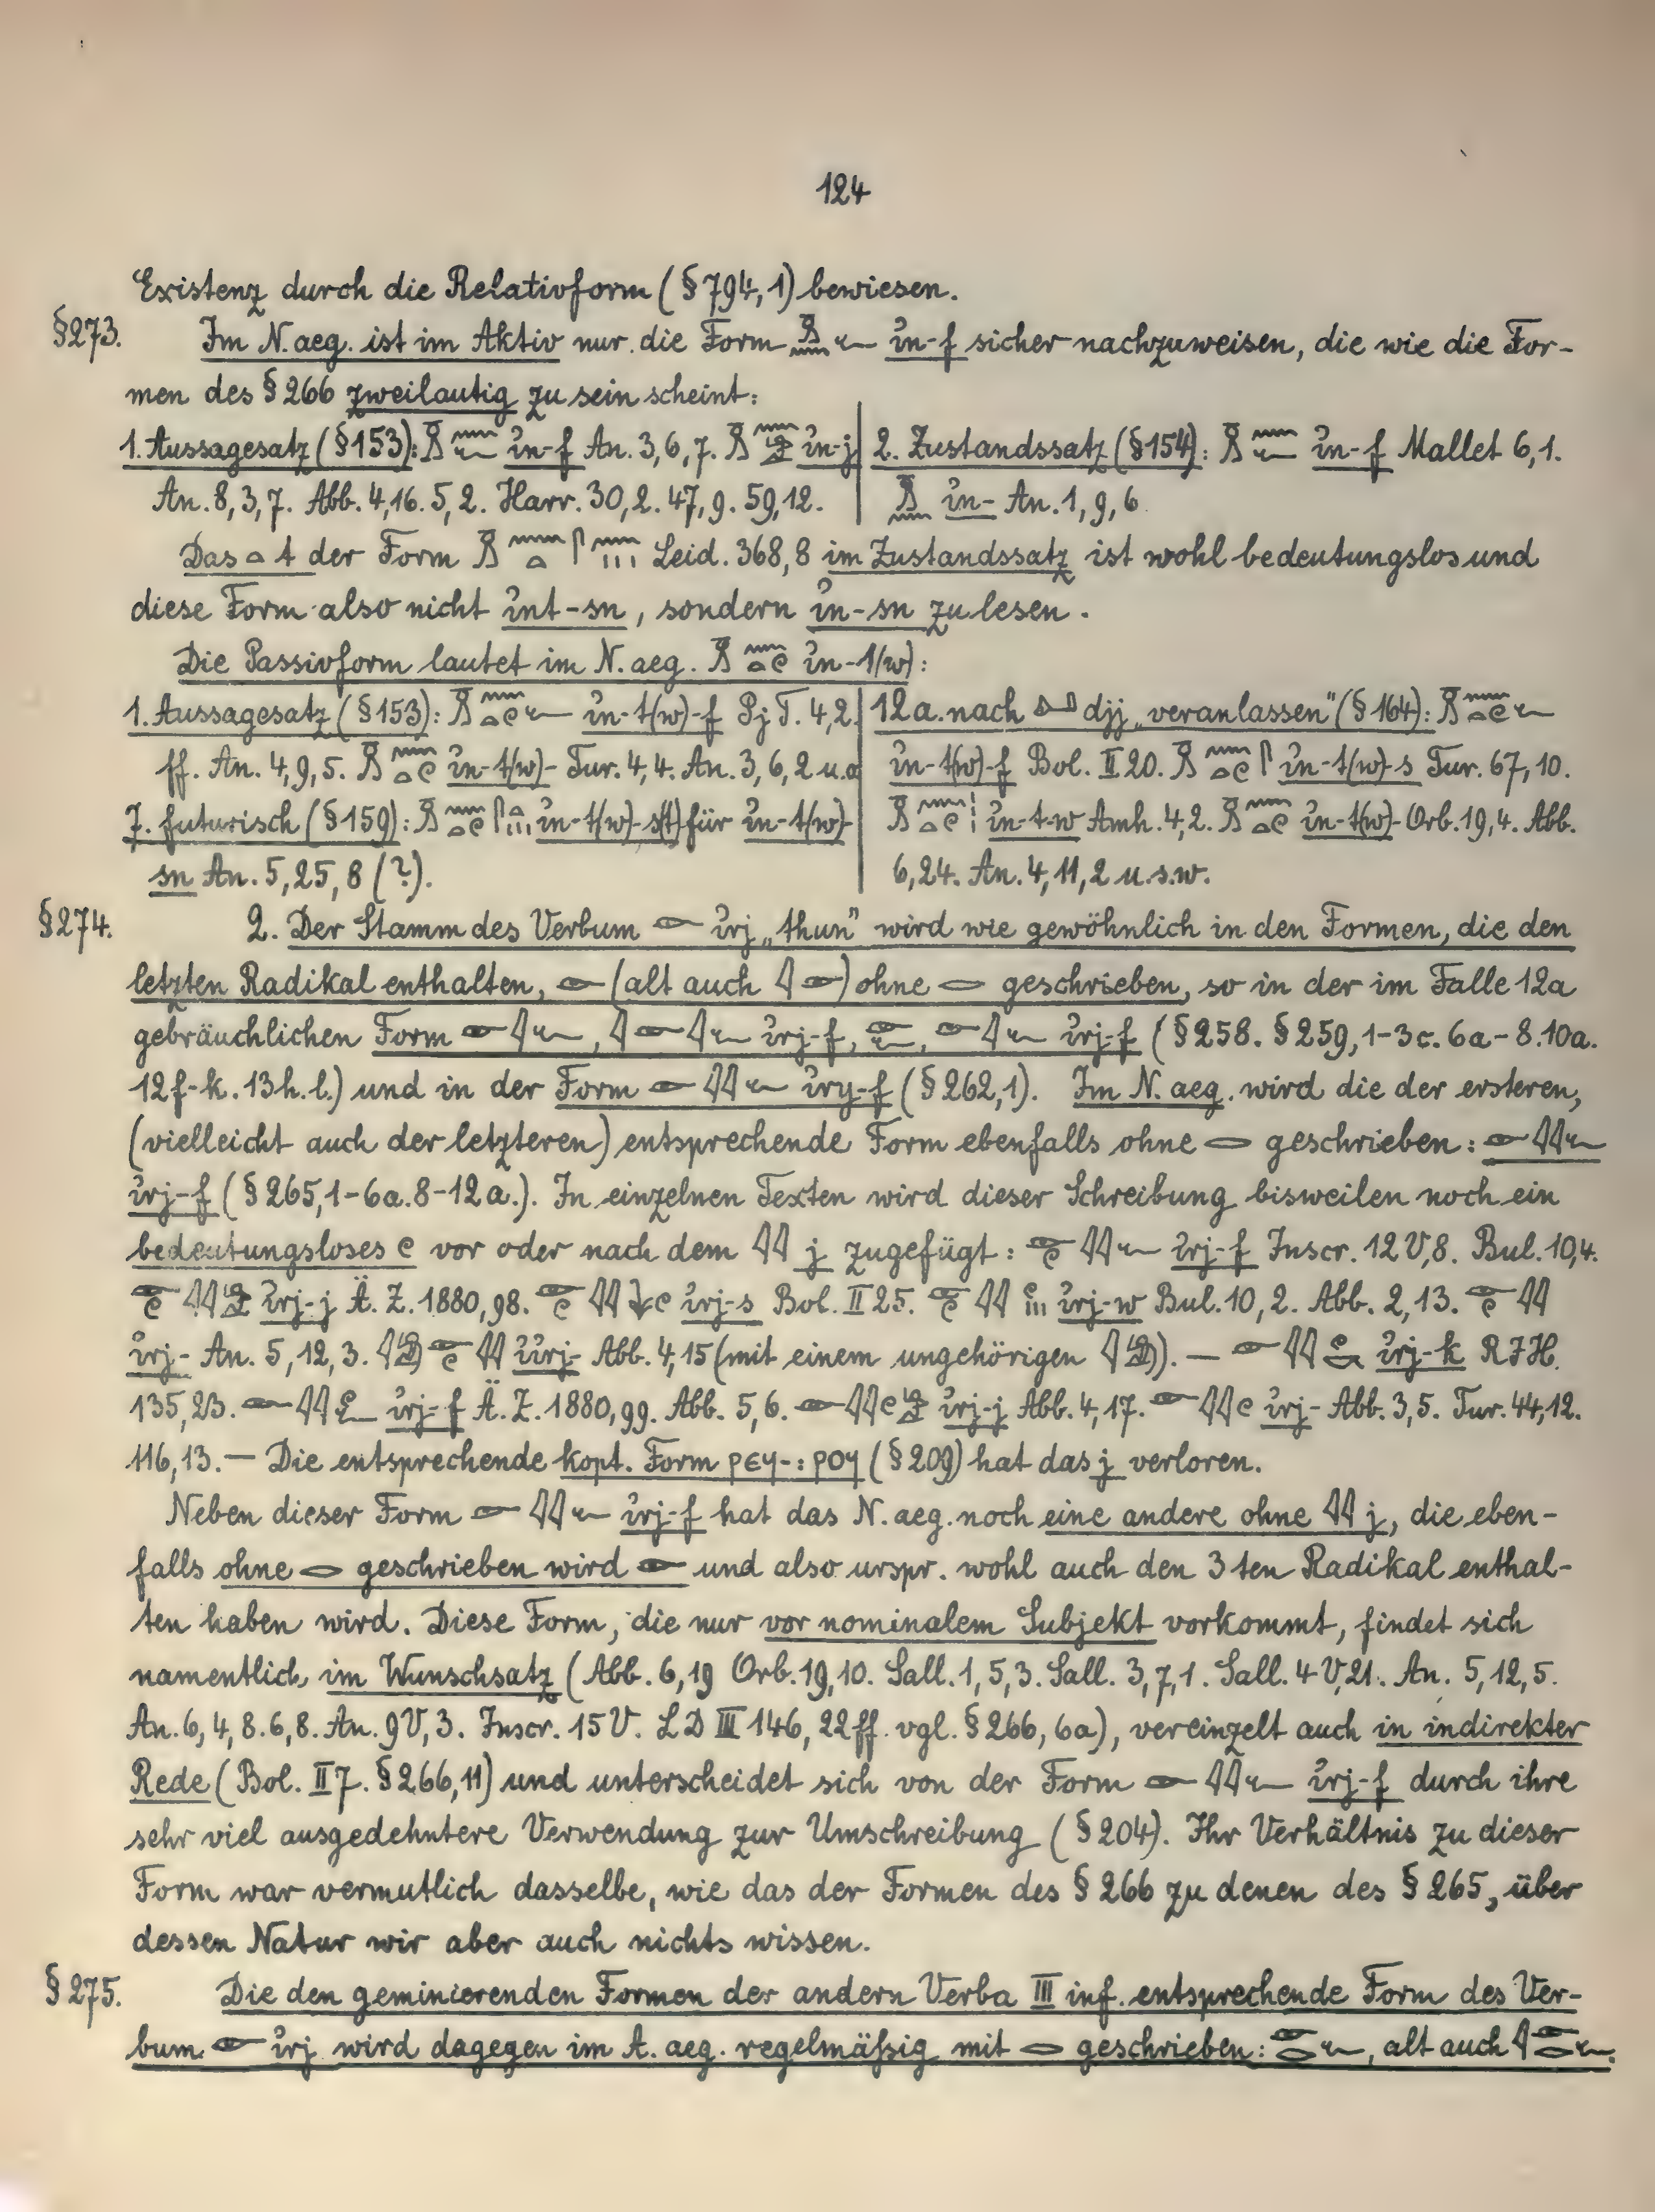 124
Existenz durch die Relativform (§794,1) bewiesen.
§273. Im N. aeg. ist im Aktiv nur die Form 𓏎𓈖𓆑 ı͗n-f sicher nachzuweisen, die wie die For-
men des §266 zweilautig zu sein scheint:
1. Aussagesatz (§153): 𓏎𓈖𓆑 ı͗n-f An. 3,6,7. 𓏎𓈖𓀀 ı͗n-j
An. 8,3,7. Abb. 4,16. 5,2. Harr. 30,2. 47,9. 59,12.
2. Zustandssatz (§154): 𓏎𓈖𓆑 ı͗n-f Mallet 6,1.
𓏎𓈖 ı͗n- An. 1,9,6.
Das 𓏏 t der Form 𓏎𓈖𓏏𓋴𓈖𓏥 Leid. 368,8 im Zustandssatz ist wohl bedeutungslos und
diese Form also nicht ı͗nt-sn, sondern ı͗n-sn zu lesen.
Die Passivform lautet im N. aeg. 𓏎𓈖𓏏𓏲 ı͗n-t(w):
1. Aussagesatz (§153): 𓏎𓈖𓏏𓏲𓆑 ı͗n-t(w)-f Pj T. 4,2
ff. An. 4,9,5. 𓏎𓈖𓏏𓏲 ı͗n-t(w)- Tur. 4,4. An. 3,6,2 u.a
7. futurisch (§159): 𓏎𓈖𓏏𓏲𓋴𓏏𓏥 ı͗n-t(w)-s(t) für ı͗n-t(w)-
sn An. 5,25,8 (?).
12a. nach 𓂞 djj „veranlassen" (§164): 𓏎𓈖𓏏𓏲𓆑
ı͗n-t(w)-f Bol. II 20. 𓏎𓈖𓏏𓏲𓋴 ı͗n-t(w)-s Tur. 67,10.
𓏎𓈖𓏏𓏲𓏥 ı͗n-t-w Amh. 4,2. 𓏎𓈖𓏏𓏲 ı͗n-t(w)- Orb. 19,4. Abb.
6,24. An. 4,11,2 u.s.w.
§274. 2. Der Stamm des Verbum 𓁹 ı͗rj „thun" wird wie gewöhnlich in den Formen, die den
letzten Radikal enthalten, 𓁹 (alt auch 𓇋𓁹) ohne 𓂋 geschrieben, so in der im Falle 12a
gebräuchlichen Form 𓁹𓇋𓆑, 𓇋𓁹𓇋𓆑 ı͗rj-f, 𓁹𓆑, 𓁹𓇋𓆑 ı͗rj-f (§258. §259,1-3c. 6a-8. 10a.
12f-k. 13h. l.) und in der Form 𓁹𓇋𓇋𓆑 ı͗ry-f (§262,1). Im N. aeg. wird die der ersteren,
(vielleicht auch der letzteren) entsprechende Form ebenfalls ohne 𓂋 geschrieben: 𓁹𓇋𓇋𓆑
ı͗rj-f (§265,1-6a. 8-12a.). In einzelnen Texten wird dieser Schreibung bisweilen noch ein
bedeutungsloses 𓏲 vor oder nach dem 𓇋𓇋 j zugefügt: 𓁹𓏲𓇋𓇋𓆑 ı͗rj-f Inscr. 12 V,8. Bul. 10,4.
𓁹𓏲𓇋𓇋𓀀 ı͗rj-j Ä. Z. 1880,98. 𓁹𓏲𓇋𓇋𓇓𓏲 ı͗rj-s Bol. II 25. 𓁹𓏲𓇋𓇋𓏲𓏥 ı͗rj-w Bul. 10,2. Abb. 2,13. 𓁹𓏲𓇋𓇋
ı͗rj- An. 5,12,3. 𓇋𓀁𓁹𓏲𓇋𓇋 ı͗ı͗rj- Abb. 4,15 (mit einem ungehörigen 𓇋𓀁). — 𓁹𓇋𓇋𓏲𓎡 ı͗rj-k RJH.
135,23. 𓁹𓇋𓇋𓏲𓆑 ı͗rj-f Ä. Z. 1880,99. Abb. 5,6. 𓁹𓇋𓇋𓏲𓀀 ı͗rj-j Abb. 4,17. 𓁹𓇋𓇋𓏲 ı͗rj- Abb. 3,5. Tur. 44,12.
116,13. — Die entsprechende kopt. Form ⲣⲉϥ-: ⲣⲟϥ (§209) hat das j verloren.
Neben dieser Form 𓁹𓇋𓇋𓆑 ı͗rj-f hat das N. aeg. noch eine andere ohne 𓇋𓇋 j, die eben-
falls ohne 𓂋 geschrieben wird 𓁹 und also urspr. wohl auch den 3ten Radikal enthal-
ten haben wird. Diese Form, die nur vor nominalem Subjekt vorkommt, findet sich
namentlich im Wunschsatz (Abb. 6,19 Orb. 19,10. Sall. 1,5,3. Sall. 3,7,1. Sall. 4 V,21. An. 5,12,5.
An. 6,4,8. 6,8. An. 9 V,3. Inscr. 15 V. LD III 146, 22ff. vgl. §266, 6a), vereinzelt auch in indirekter
Rede (Bol. II 7. §266,11) und unterscheidet sich von der Form 𓁹𓇋𓇋𓆑 ı͗rj-f durch ihre
sehr viel ausgedehntere Verwendung zur Umschreibung (§204). Ihr Verhältnis zu dieser
Form war vermutlich dasselbe, wie das der Formen des §266 zu denen des §265, über
dessen Natur wir aber auch nichts wissen.
§275. Die den geminierenden Formen der andern Verba III inf. entsprechende Form des Ver-
bum 𓁹 ı͗rj wird dagegen im A. aeg. regelmäßig mit 𓂋 geschrieben: 𓁹𓂋𓆑, alt auch 𓇋𓁹𓂋𓆑.